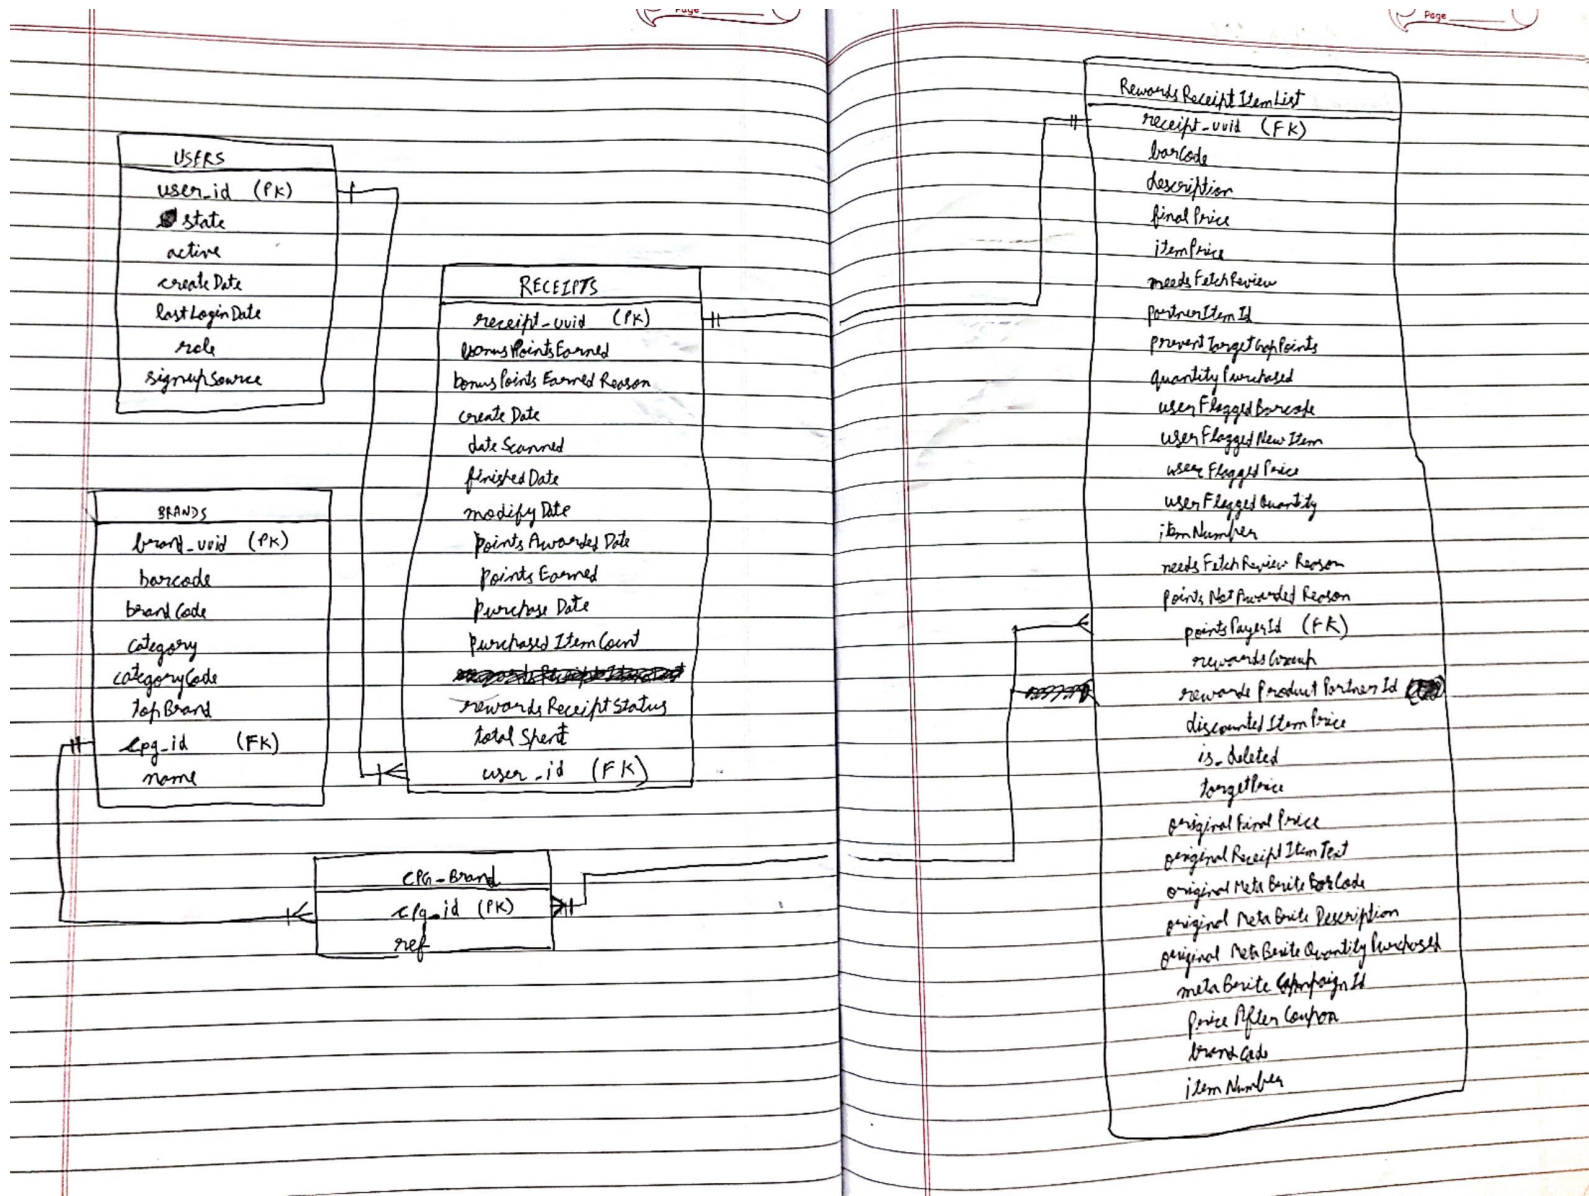 Page
Page
USERS
user_id (PK)
state
active
createDate
lastLoginDate
role
signupSource
BRANDS
brand_uuid (PK)
barcode
brandCode
category
categoryCode
topBrand
cpg_id (FK)
name
RECEIPTS
receipt_uuid (PK)
bonusPointsEarned
bonusPoints Earned Reason
create Date
date Scanned
finished Date
modify Date
points Awarded Date
points Earned
purchase Date
purchased Item Count
rewards Receipt Status
total Spent
user_id (FK)
CPG_Brand
cpg_id (PK)
ref
RewardsReceiptItemList
receipt_uuid (FK)
barcode
description
finalPrice
itemPrice
needsFetchReview
partnerItemId
preventTargetGapPoints
quantityPurchased
userFlaggedBarcode
userFlaggedNewItem
userFlaggedPrice
userFlaggedQuantity
itemNumber
needsFetchReview Reason
pointsNotAwarded Reason
pointsPayerId (FK)
rewardsGroup
rewards Product Partner Id
discounted Item Price
is_deleted
targetPrice
original Final Price
original Receipt Item Text
original Meta Brite BarCode
original Meta Brite Description
original Meta Brite Quantity Purchased
meta Brite Campaign Id
price After Coupon
brandCode
itemNumber